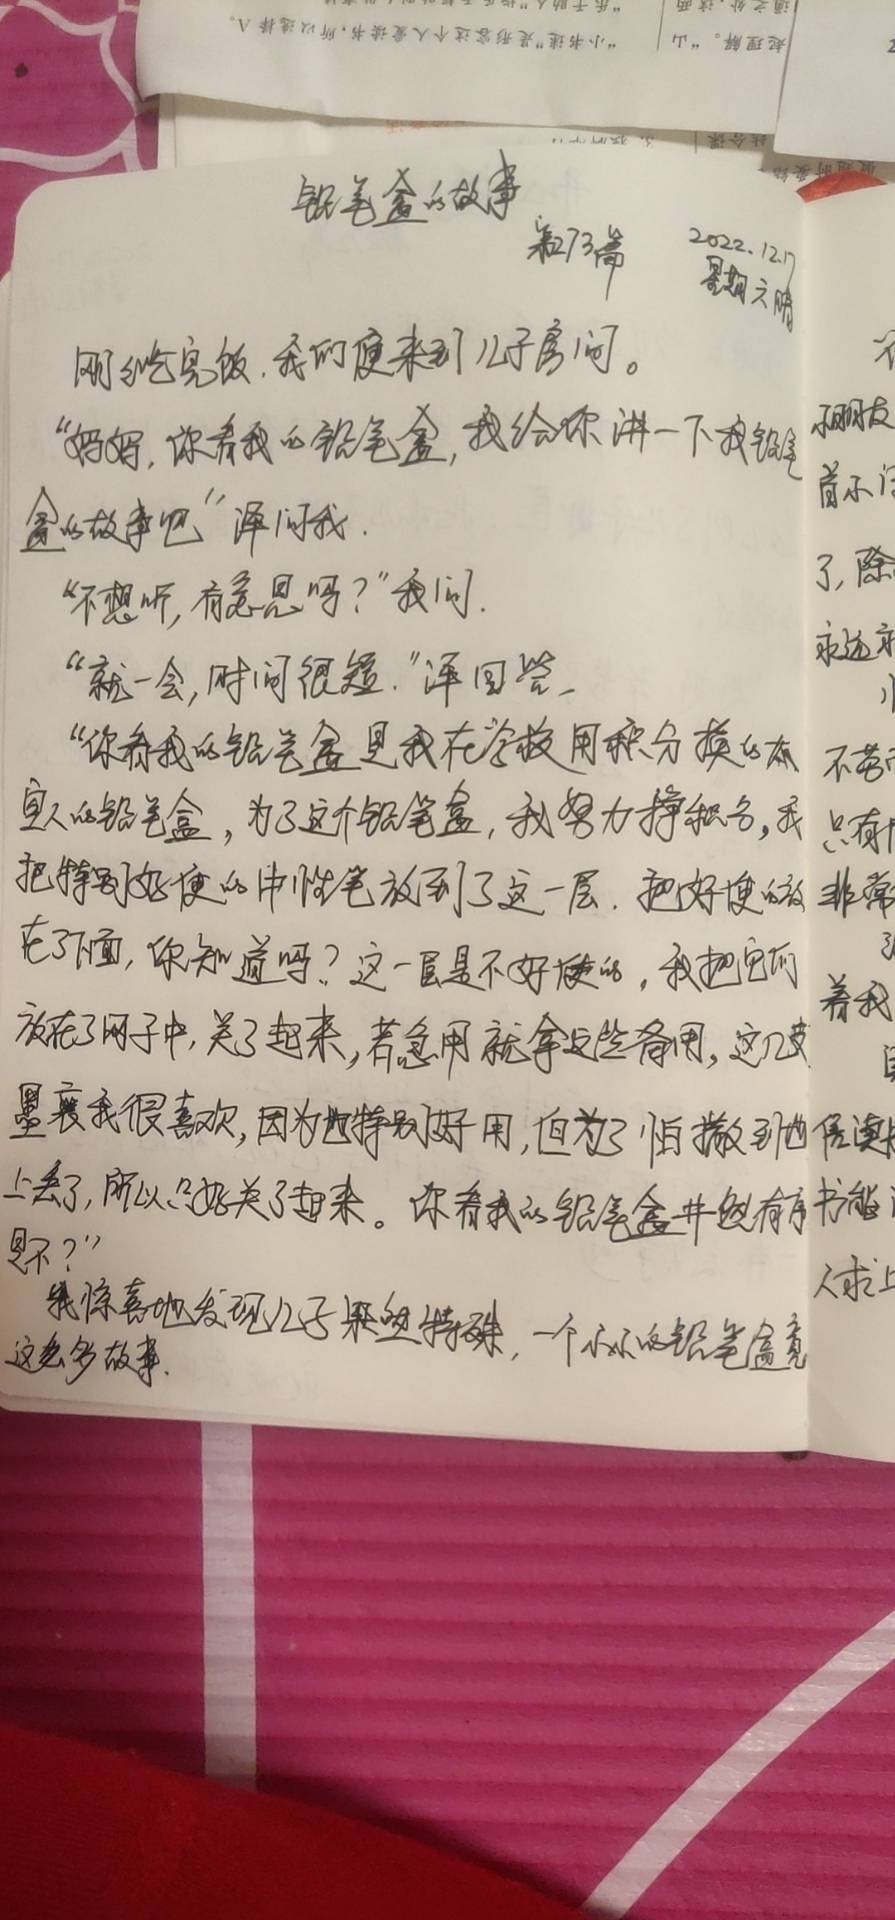 铅笔盒的故事
第273篇
2022.12.17
星期六晴
刚吃完饭,我们便来到儿子房间。
“妈妈,你看我的铅笔盒,我给你讲一下我铅笔
盒的故事吧”泽问我.
“不想听,有意思吗?”我问.
“就一会,时间很短.”泽回答.
“你看我的铅笔盒是我在学校用积分换的
的铅笔盒,为了这个铅笔盒,我努力挣积分,我
把特别好使的中性笔放到了这一层.把好使的放
在了下面,你知道吗?这一层是不好使的,我把它们
放在了网子中,关了起来,若急用就拿这些备用,这几支
墨囊我很喜欢,因为它特别好用,但为了怕撒到地
上丢了,所以只好关了起来。你看我的铅笔盒井然有序
是不?”
我惊喜地发现儿子果然特殊,一个小小的铅笔盒竟
这么多故事.
小朋友
了,除
永远
只有
非常
着我
书能
人求上
“小书迷”是形容这个人爱读书,所以选择A。
起理解。“山